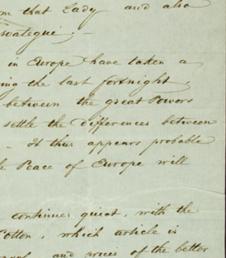 that Lady and also
in Europe have taken a
the last fortnight,
between the great Powers
settle the differences between
It thus appears probable
Peace of Europe will
continues quiet, with the
Cotton, which article is
and prices of the better